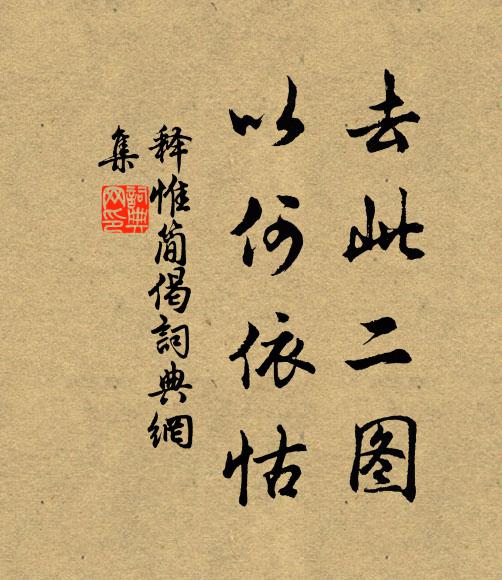 去此二图
以何依怙
释惟简偈詞典網
集
詞典
网印